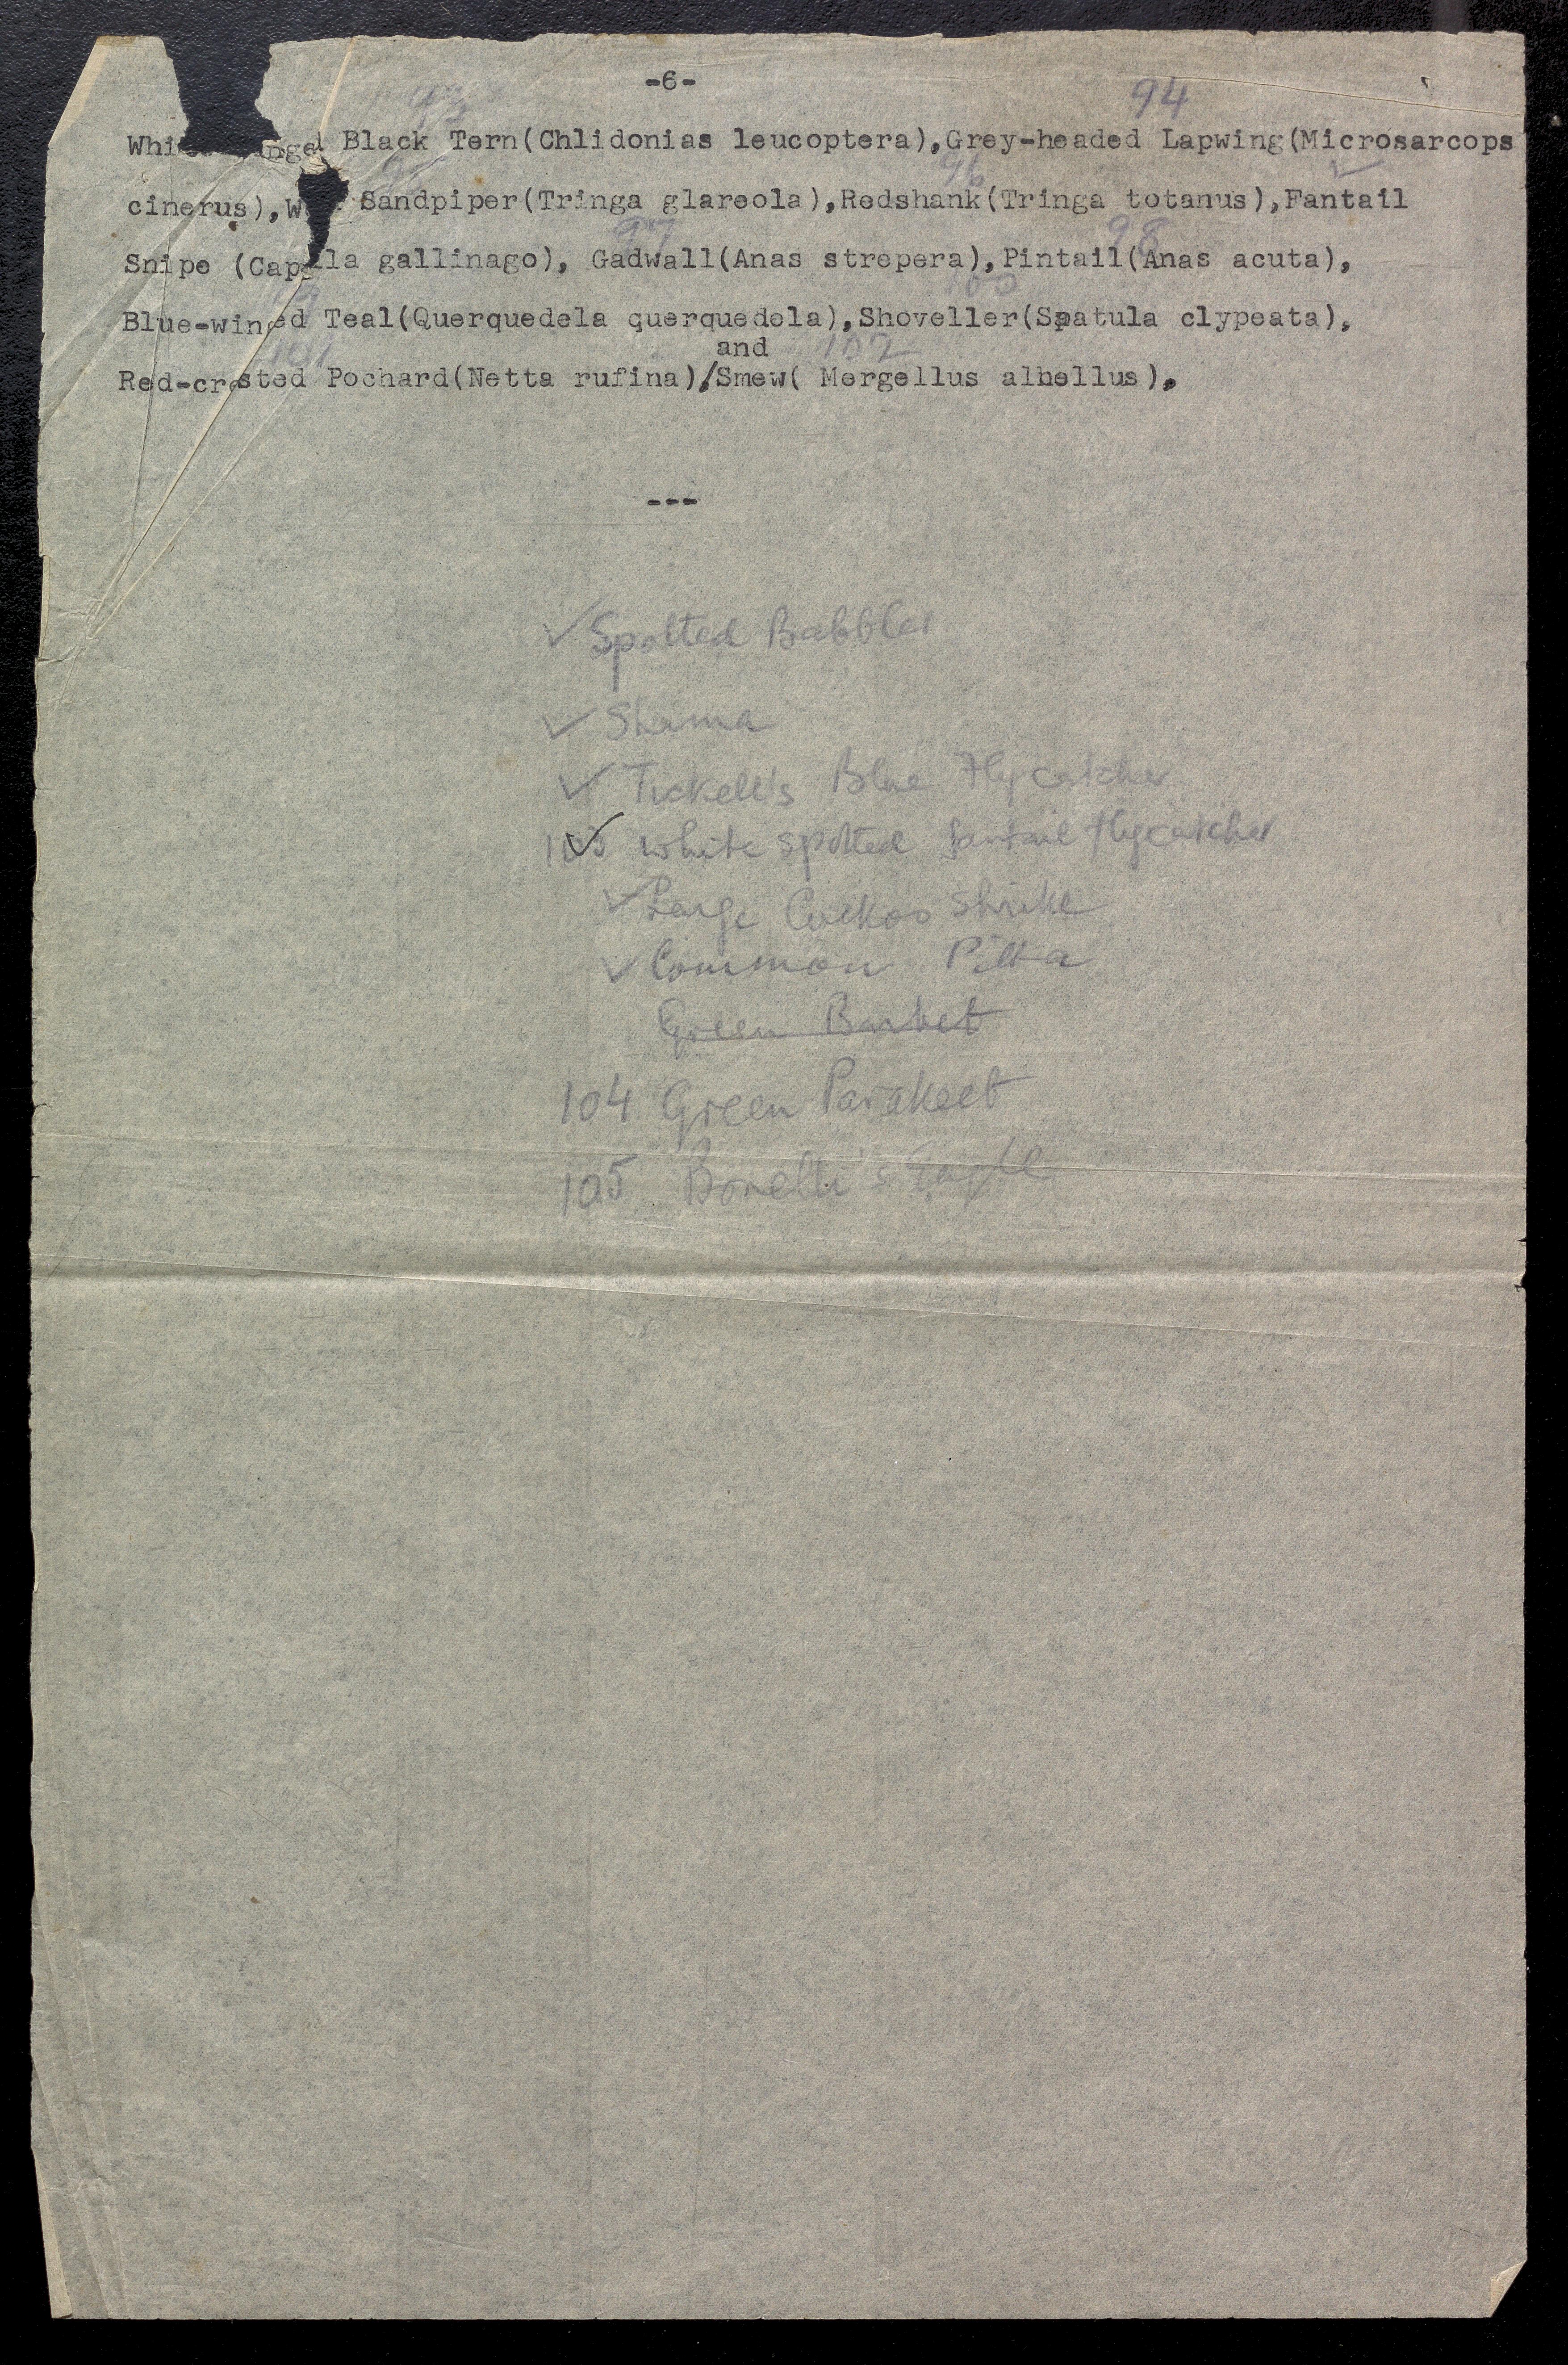 -6-
93 94
Whi nged Black Tern(Chlidonias leucoptera),Grey-headed Lapwing(Microsarcops
95 96 ✓
cinerus),W Sandpiper(Tringa glareola),Redshank(Tringa totanus),Fantail
97 98
Snipe (Capella gallinago), Gadwall(Anas strepera),Pintail(Anas acuta),
99 100
Blue-winged Teal(Querquedela querquedela),Shoveller(Spatula clypeata),
101 and 102
Red-crested Pochard(Netta rufina)/Smew( Mergellus albellus).
---
✓ Spotted Babbler
✓ Shama
✓ Tickell's Blue Flycatcher
103 ✓ white spotted fantail flycatcher
✓ Large Cuckoo Shrike
✓ Common Pitta
Green Barbet
104 Green Parakeet
105 Bonelli's Eagle